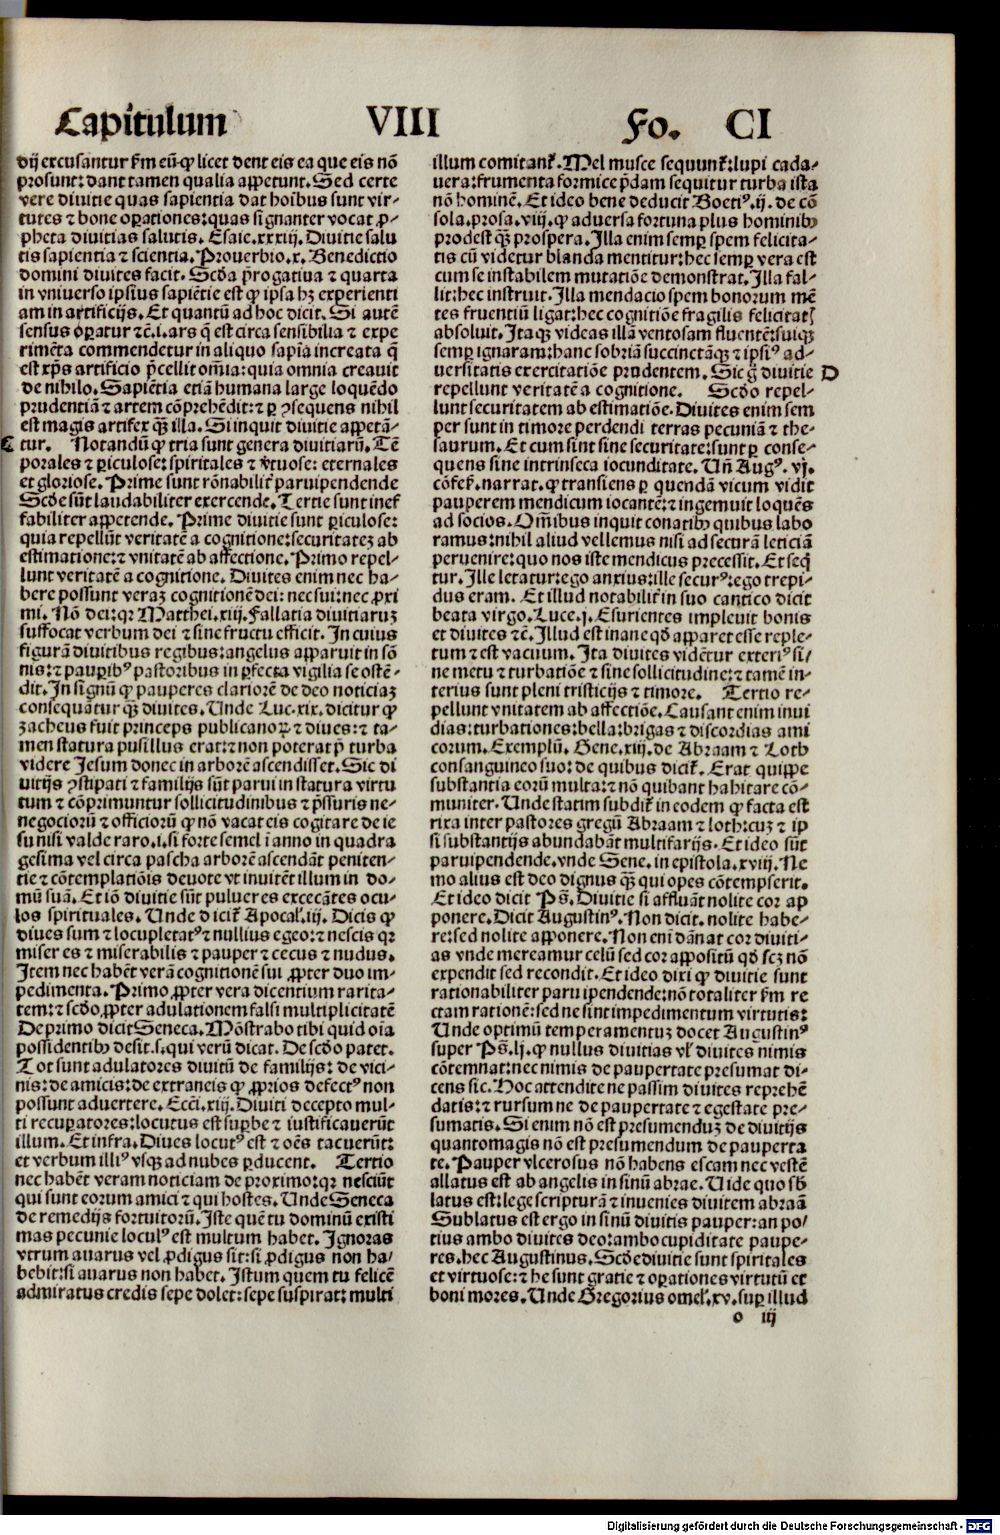 Capitulum VIII Fo. CI
dij excusantur ẜm eū·ꝙ licet dent eis ea que eis nō
prosunt: dant tamen qualia appetunt. Sed certe
vere diuitie quas sapientia dat hoībus sunt vir-
tutes ⁊ bone oꝑationes: quas signanter vocat ꝓ-
pheta diuitias salutis. Esaie.xxxiij. Diuitie salu
tis sapientia ⁊ scientia. Prouerbio.x. Benedictio
domini diuites facit. Scd̄a p̄rogatiua ⁊ quarta
in vniuerso ipsius sapiētie est ꝙ ipsa hꝫ experienti
am in artificijs. Et quantū ad hoc dicit. Si autē
sensus oꝑatur ⁊ē.i.ars q̄ est circa sensibilia ⁊ expe
rimēta commendetur in aliquo sapīa increata q̄
est xp̄s artificio p̄cellit om̄ia: quia omnia creauit
de nihilo. Sapiētia etiā humana large loquēdo
prudentiā ⁊ artem cōprehēdit: ⁊ ꝑ ꝯsequens nihil
est magis artifex qᷓꝫ illa. Si inquit diuitie appetā-
C tur. Notandū ꝙ tria sunt genera diuitiarū. Tē
porales ⁊ ꝑiculose: spiritales ⁊ v̄tuose: eternales
et gloriose. Prime sunt rōnabilit̄ paruipendende
Scd̄e sūt laudabiliter exercende. Tertie sunt inef
fabiliter appetende. Prime diuitie sunt ꝑiculose:
quia repellūt veritatē a cognitione: securitateꝫ ab
estimatione: ⁊ vnitatē ab affectione. Primo repel-
lunt veritatē a cognitione. Diuites enim nec ha-
bere possunt veraꝫ cognitionē dei: nec sui: nec ꝓxi
mi. Nō dei: qꝛ Matthei.xiij. Fallatia diuitiaruꝫ
suffocat verbum dei ⁊ sine fructu efficit. In cuius
figurā diuitibus regibus: angelus apparuit in sō
nis: ⁊ paupībꝰ pastoribus in ꝑfecta vigilia se ostē-
dit. In signū ꝙ pauperes clariorē de deo noticiaꝫ
consequātur qᷓꝫ diuites. Unde Luc.xix. dicitur ꝙ
zacheus fuit princeps publicanoꝝ ⁊ diues: ⁊ ta-
men statura pusillus erat: ⁊ non poterat p̄ turba
videre Jesum donec in arborē ascendisset. Sic di
uitijs ꝯstipati ⁊ familijs sūt parui in statura virtu
tum ⁊ cōprimuntur sollicitudinibus ⁊ p̄ssuris ne-
negociorū ⁊ officiorū ꝙ nō vacat eis cogitare de ie
su nisi valde raro.i.si forte semel ī anno in quadra
gesima vel circa pascha arborē ascendāt peniten-
tie ⁊ cōtemplatiōis deuote vt inuitēt illum in do-
mū suā. Et iō diuitie sūt pulueres excecātes ocu-
los spirituales. Unde dicit̄ Apocal̄.iij. Dicis ꝙ
diues sum ⁊ locupletatꝰ ⁊ nullius egeo: ⁊ nescis qꝛ
miser es ⁊ miserabilis ⁊ pauper ⁊ cecus ⁊ nudus.
Item nec habēt verā cognitionē sui ꝓpter duo im-
pedimenta. Primo ꝓpter vera dicentium rarita-
tem: ⁊ scd̄o ꝓpter adulationem falsi multiplicitatē
De primo dicit Seneca. Mōstrabo tibi quid oīa
possidentibꝰ desit.s.qui verū dicat. De scd̄o patet.
Tot sunt adulatores diuitū de familijs: de vici-
nis: de amicis: de extraneis ꝙ ꝓprios defectꝰ non
possunt aduertere. Ecci.xiij. Diuiti decepto mul-
ti recuꝑatores: locutus est suꝑbe ⁊ iustificauerūt
illum. Et infra. Diues locutꝰ est ⁊ oēs tacuerūt:
et verbum illiꝰ vsqꝫ ad nubes ꝑducent. Tertio
nec habēt veram noticiam de proximo: qꝛ nesciūt
qui sunt eorum amici ⁊ qui hostes. Unde Seneca
de remedijs fortuitorū. Iste quē tu dominū existi
mas pecunie loculꝰ est multum habet. Ignoras
vtrum auarus vel ꝓdigus sit: si ꝓdigus non ha-
bebit: si auarus non habet. Istum quem tu felicē
admiratus credis sepe dolet: sepe suspirat: multi
illum comitant̄. Mel musce sequunt̄: lupi cada-
uera: frumenta formice p̄dam sequitur turba ista
nō hominē. Et ideo bene deducit Boetiꝰ.ij. de cō
sola.prosa.viij. ꝙ aduersa fortuna plus hominibꝰ
prodest qᷓꝫ prospera. Illa enim semꝑ spem felicita-
tis cū videtur blanda mentitur: hec semꝑ vera est
cum se instabilem mutatiōe demonstrat. Illa fal-
lit: hec instruit. Illa mendacio spem bonorum mē
tes fruentiū ligat: hec cognitiōe fragilis felicitatꝭ
absoluit. Itaqꝫ videas illā ventosam fluentē: suiqꝫ
semꝑ ignaram: hanc sobriā succinctāqꝫ ⁊ ipsiꝰ ad-
uersitatis exercitatiōe prudentem. Sic ḡ diuitie D
repellunt veritatē a cognitione. Scd̄o repel-
lunt securitatem ab estimatiōe. Diuites enim sem
per sunt in timore perdendi terras pecuniā ⁊ the-
saurum. Et cum sint sine securitate: sunt ꝑ conse-
quens sine intrinseca iocunditate. Un̄ Augꝰ. vj.
cōfeſ̄. narrat. ꝙ transiens ꝑ quendā vicum vidit
pauperem mendicum iocantē: ⁊ ingemuit loquēs
ad socios. Om̄ibus inquit conatibꝰ quibus labo
ramus: nihil aliud vellemus nisi ad securā leticiā
peruenire: quo nos iste mendicus precessit. Et seq̄
tur. Ille letatur: ego anxius: ille securꝰ: ego trepi-
dus eram. Et illud notabilit̄ in suo cantico dicit
beata virgo. Luce.j. Esurientes impleuit bonis
et diuites ⁊ē. Illud est inane qd̄ apparet esse reple-
tum ⁊ est vacuum. Ita diuites vidētur exteriꝰ si-
ne metu ⁊ turbatiōe ⁊ sine sollicitudine: ⁊ tamē in-
terius sunt pleni tristicijs ⁊ timore. Tertio re-
pellunt vnitatem ab affectiōe. Causant enim inui
dias: turbationes: bella: brigas ⁊ discordias ami
corum. Exemplū. Gene.xiij. de Abraam ⁊ Loth
consanguineo suo: de quibus dicit̄. Erat quippe
substantia eorū multa: ⁊ nō quibant habitare cō-
muniter. Unde statim subdit̄ in eodem ꝙ facta est
rixa inter pastores gregū Abraam ⁊ loth: cuꝫ ⁊ ip
si substantijs abundabāt multifarijs. Et ideo sūt
paruipendende. vnde Sene. in epistola.xviij. Ne
mo alius est deo dignus qᷓꝫ qui opes cōtempserit.
Et ideo dicit Pš. Diuitie si affluāt nolite cor ap
ponere. Dicit Augustinꝰ. Non dicit. nolite habe-
re: sed nolite apponere. Non eni dānat cor diuiti-
as vnde mereamur celū sed cor appositū qd̄ scꝫ nō
expendit sed recondit. Et ideo dixi ꝙ diuitie sunt
rationabiliter paruipendende: nō totaliter ẜm re
ctam rationē: sed ne sint impedimentum virtutis:
Unde optimū temperamentuꝫ docet Augustinꝰ
super Pš.lj. ꝙ nullus diuitias vl̄ diuites nimis
cōtemnat: nec nimis de paupertate presumat di-
cens sic. Hoc attendite ne passim diuites reprehē
datis: ⁊ rursum ne de paupertate ⁊ egestate pre-
sumatis. Si enim nō est presumenduꝫ de diuitijs
quantomagis nō est presumendum de pauperta
te. Pauper vlcerosus nō habens escam nec vestē
allatus est ab angelis in sinū abrae. Uide quo sb̄
latus est: lege scripturā ⁊ inuenies diuitem abraā
Sublatus est ergo in sinū diuitis pauper: an po-
tius ambo diuites deo: ambo cupiditate paupe-
res. hec Augustinus. Scd̄e diuitie sunt spiritales
et virtuose: ⁊ he sunt gratie ⁊ oꝑationes virtutū et
boni mores. Unde Gregorius omel̄.xv. suꝑ illud
o iij
Digitalisierung gefördert durch die Deutsche Forschungsgemeinschaft - DFG